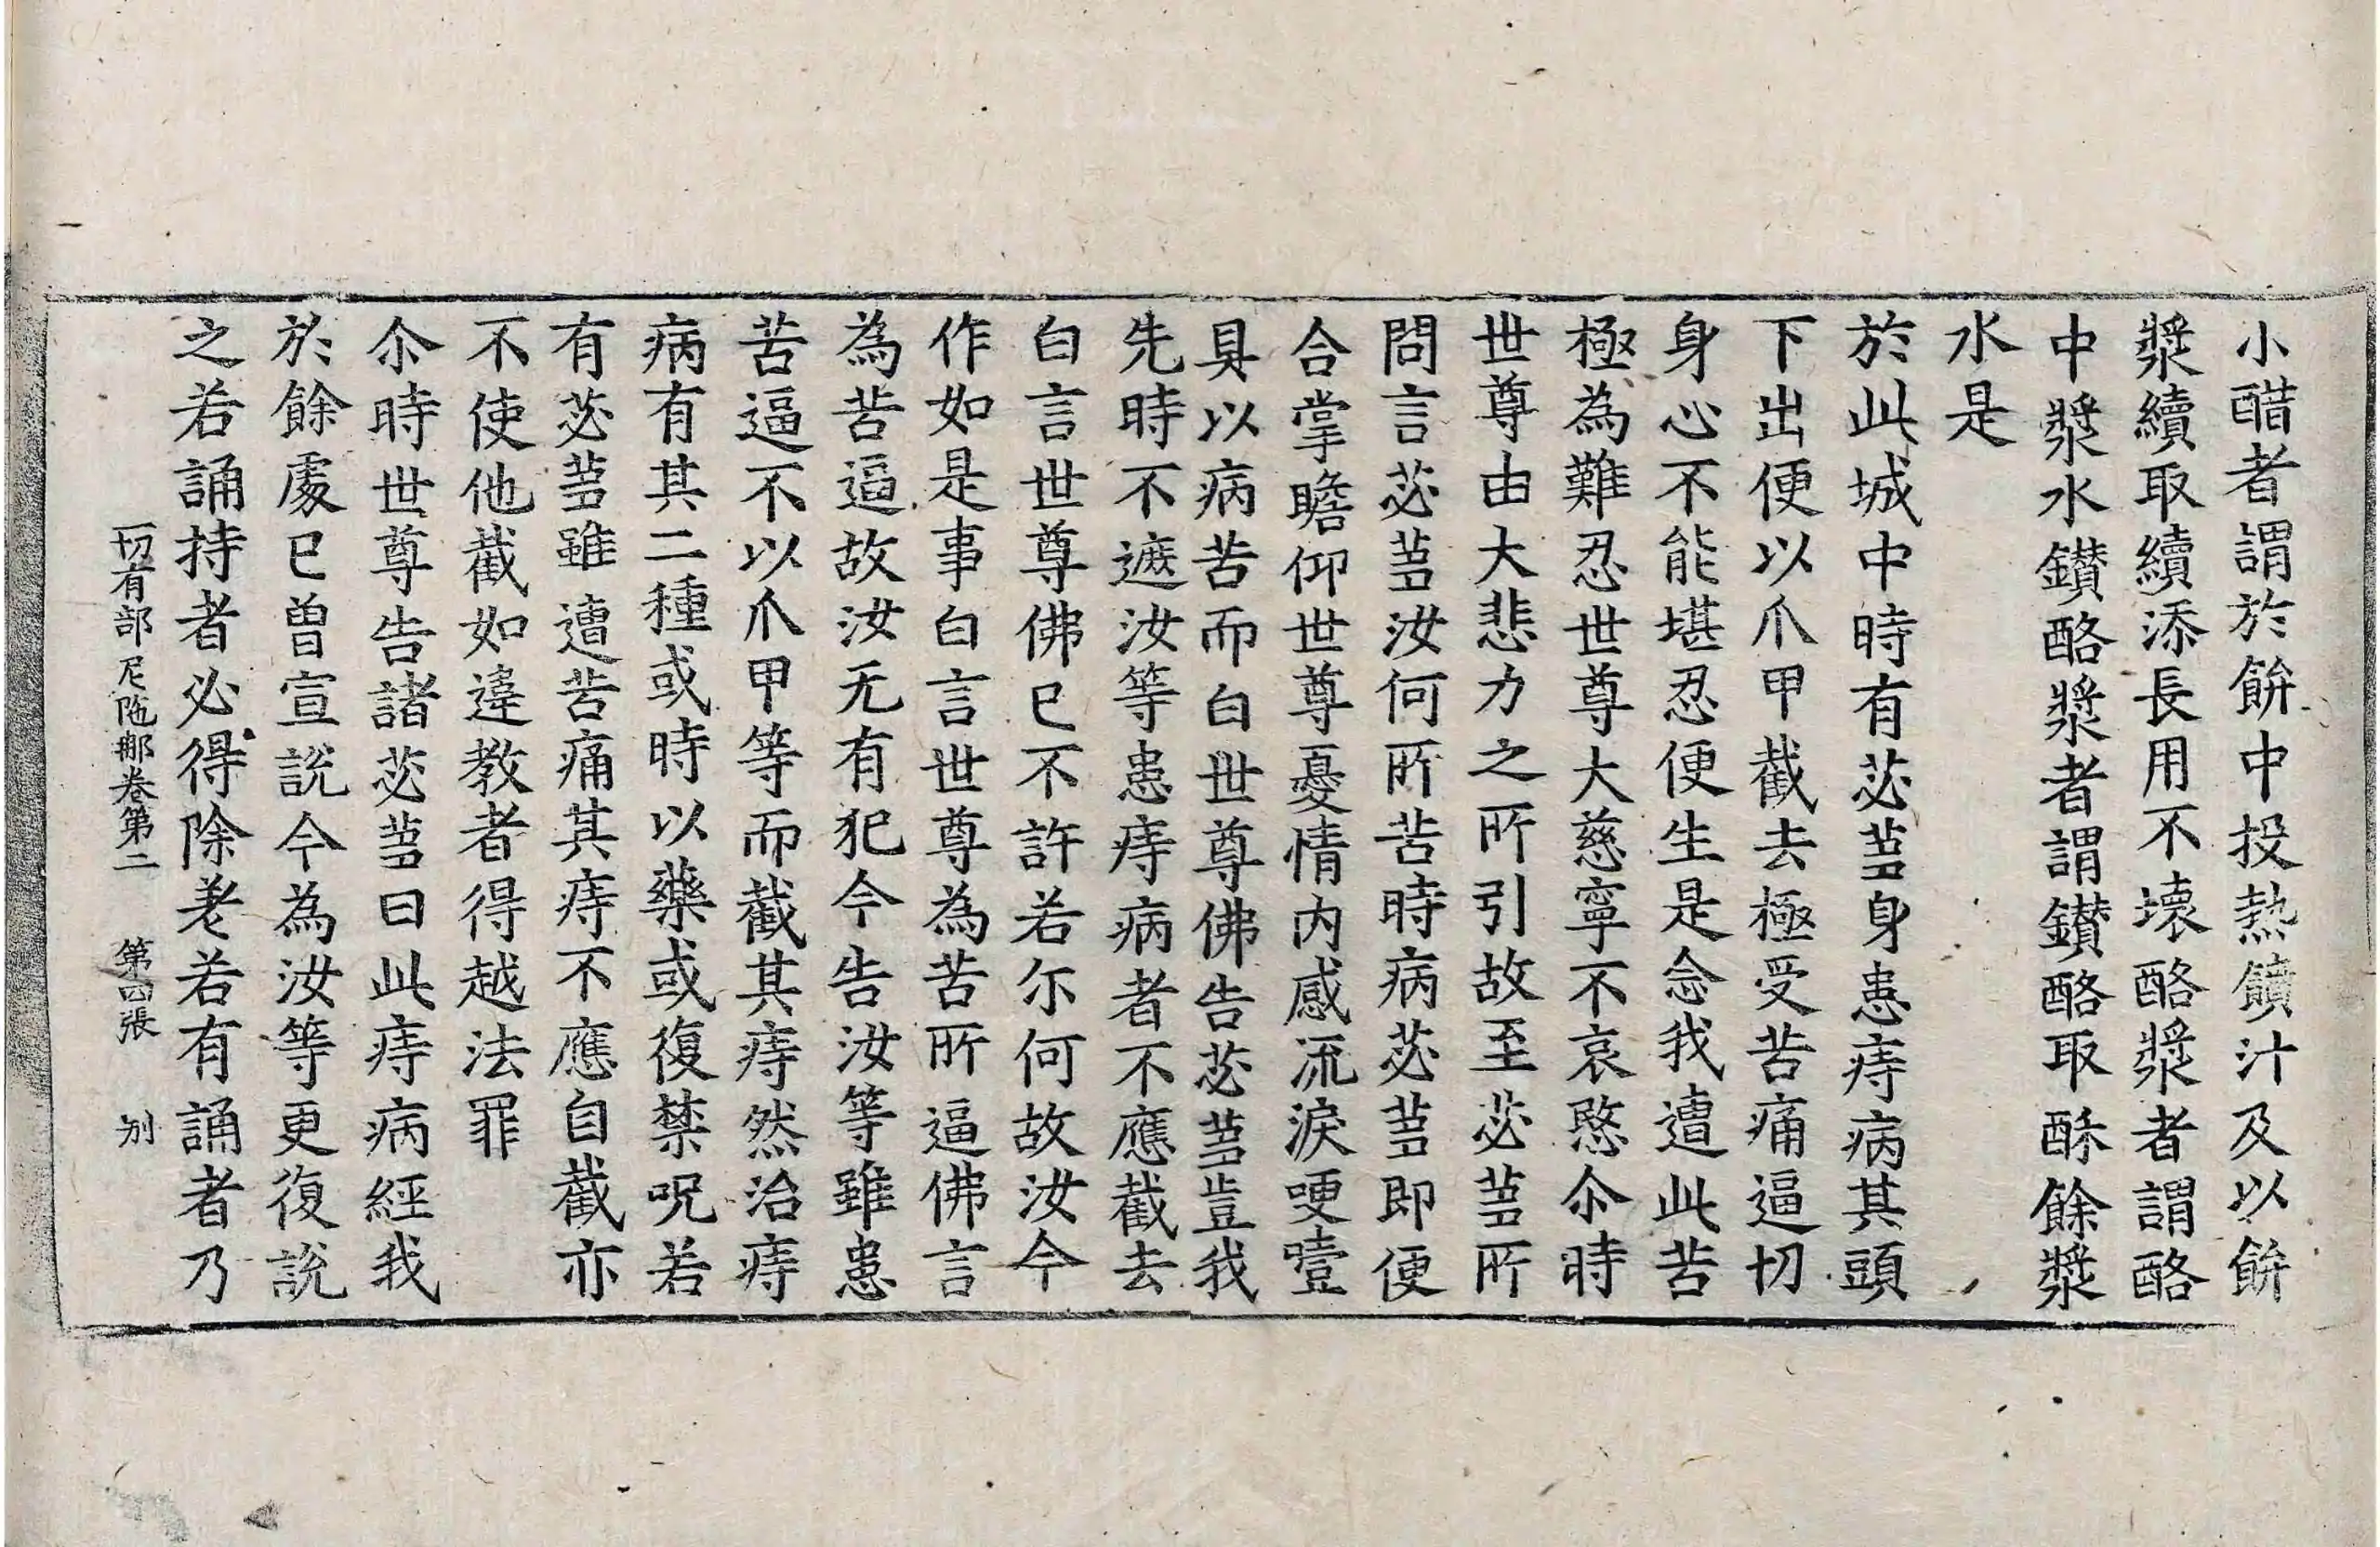 小醋者謂於餅中投熱饙汁及以餅
漿續取續添長用不壞酪漿者謂酪
中漿水鑚酪漿者謂鑚酪取酥餘漿
水是
於此城中時有苾蒭身患痔病其頭
下出便以爪甲截去極受苦痛逼切
身心不能堪忍便生是念我遭此苦
極為難忍世尊大慈寧不哀愍尒時
世尊由大悲力之所引故至苾蒭所
問言苾蒭汝何所苦時病苾蒭即便
合掌瞻仰世尊憂情内感流淚哽噎
具以病苦而白世尊佛告苾蒭豈我
先時不遮汝等患痔病者不應截去
白言世尊佛已不許若尔何故汝今
作如是事白言世尊為苦所逼佛言
為苦逼故汝无有犯今告汝等雖患
苦逼不以爪甲等而截其痔然治痔
病有其二種或時以藥或復禁呪若
有苾蒭雖遭苦痛其痔不應自截亦
不使他截如違教者得越法罪
尒時世尊告諸苾蒭曰此痔病經我
於餘處已曾宣說今為汝等更復說
之若誦持者必得除差若有誦者乃
一切有部尼陁那卷第二 第四張 別